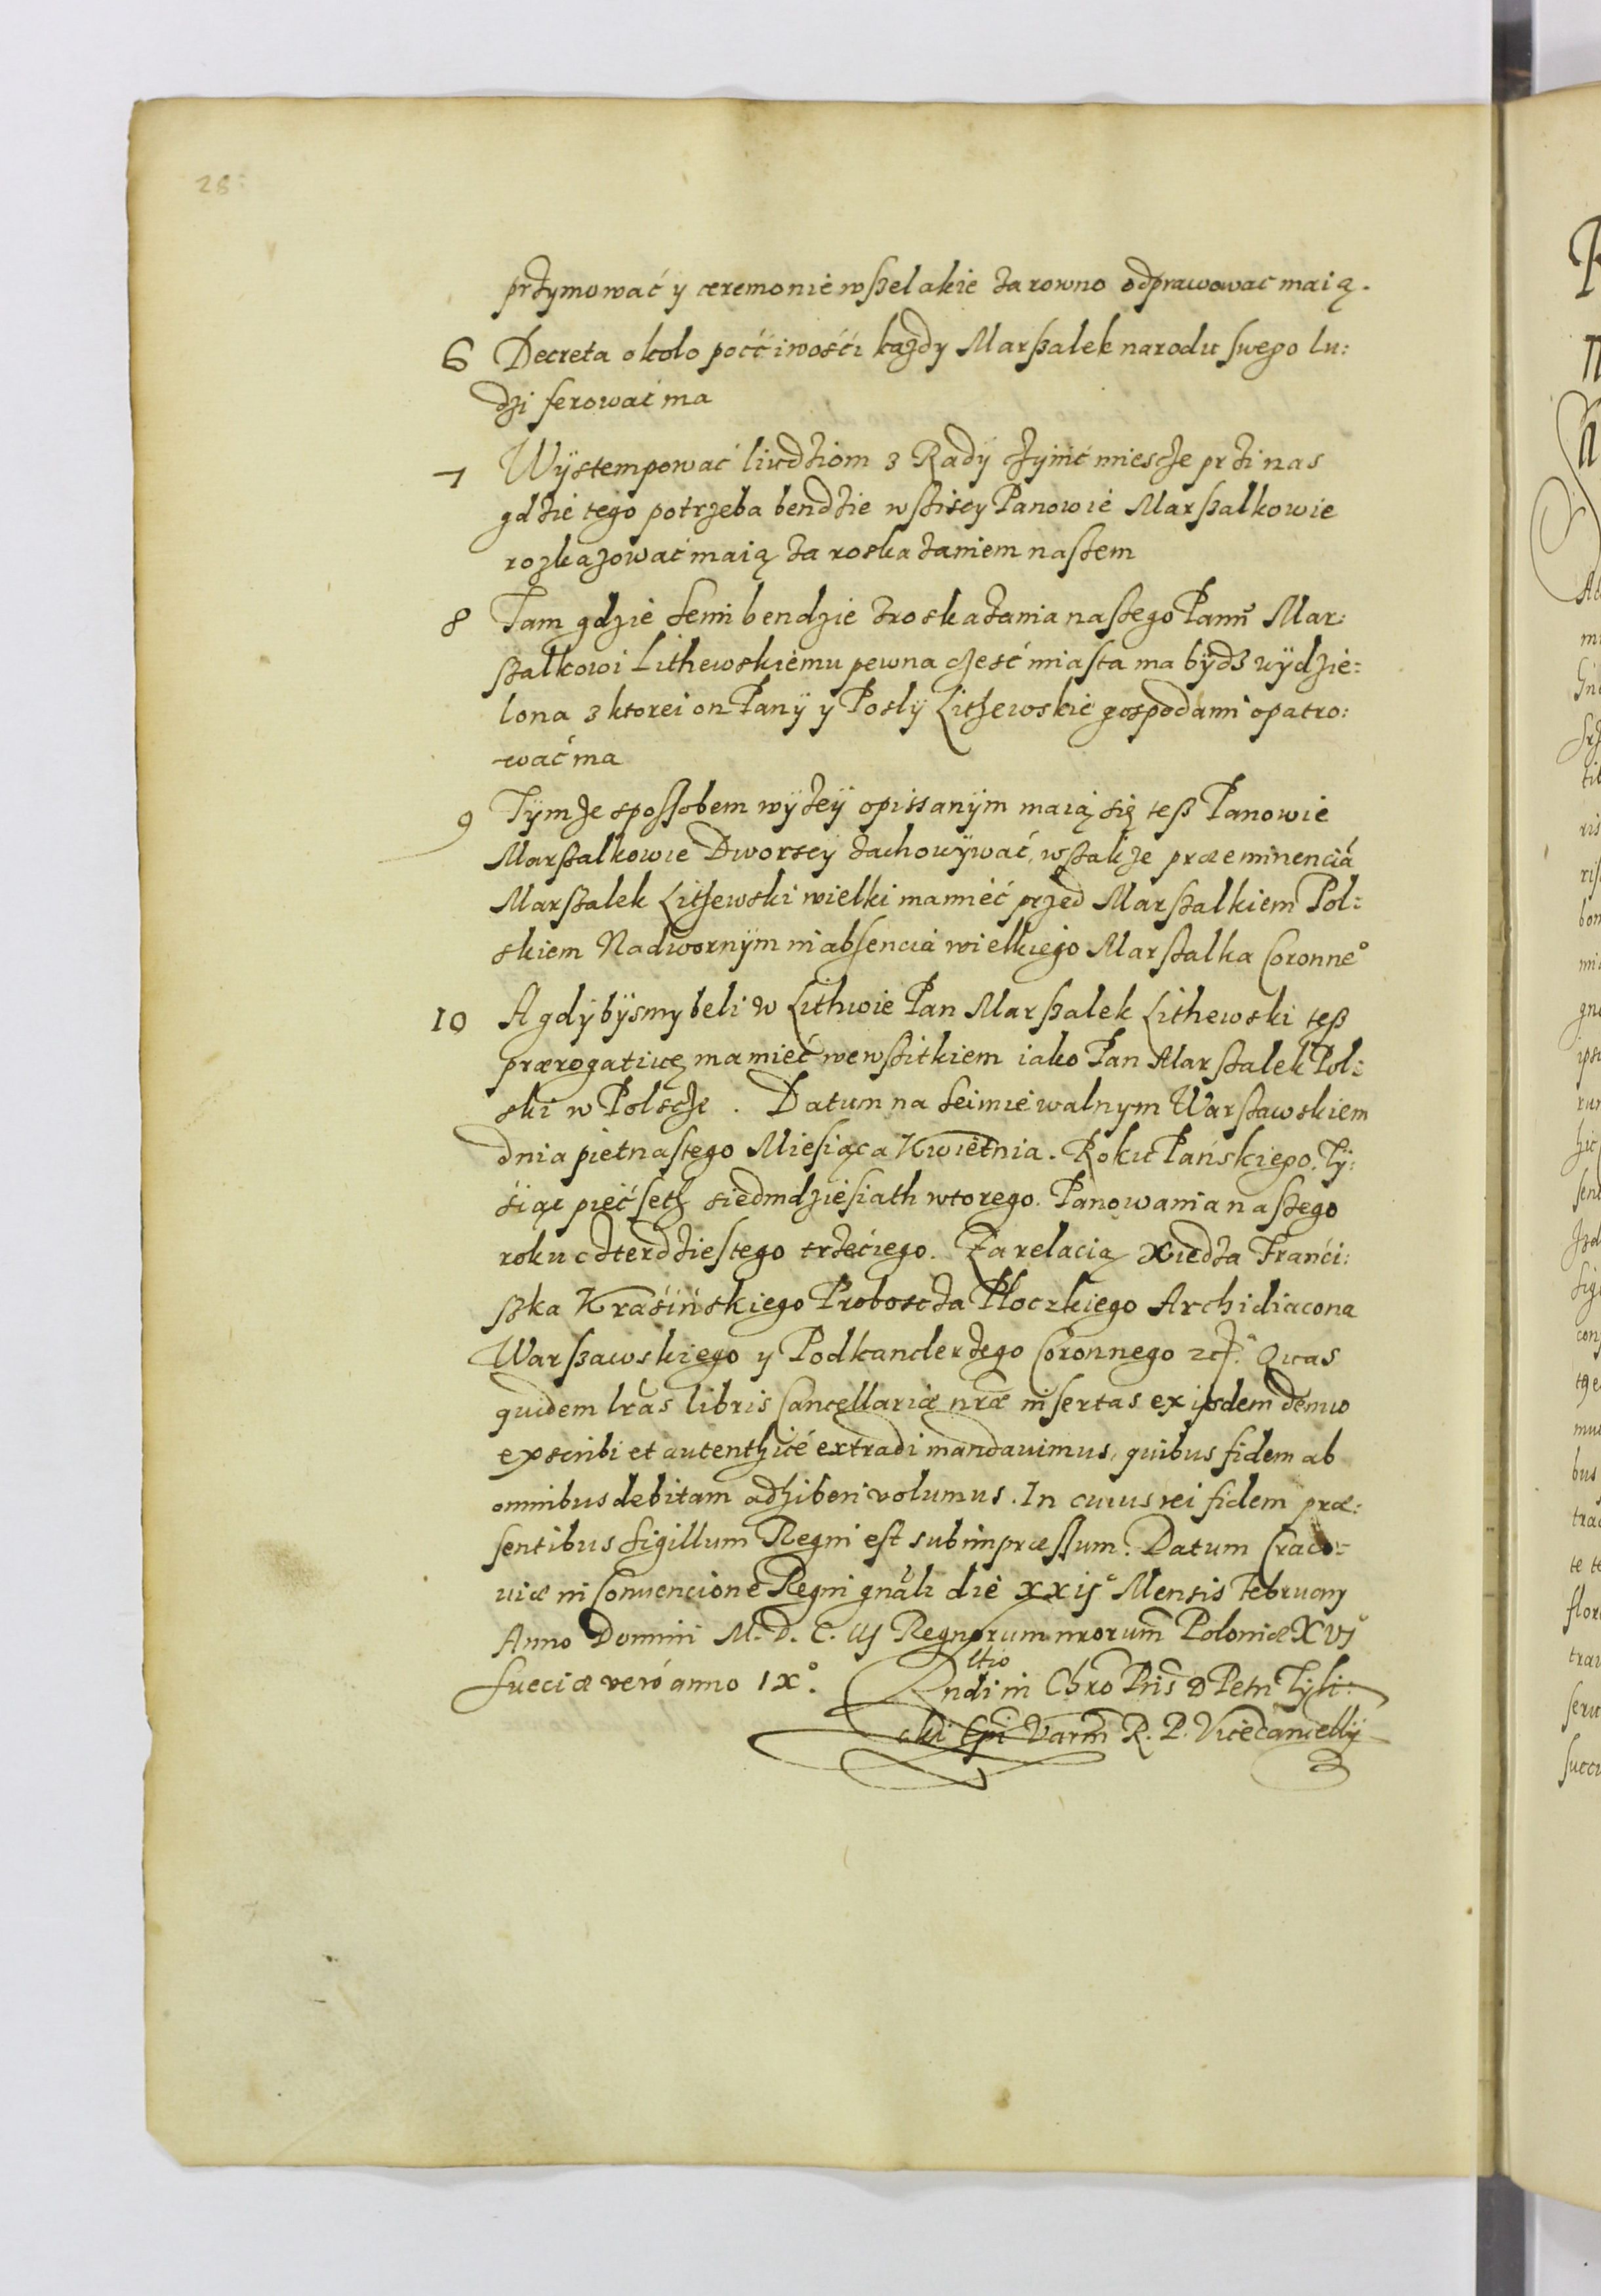 28:
przymować y ceremonie wszelakie zarowno odprawować maią.
6 Decreta okolo poććiwośći każdy Marszalek narodu swego lu:
dzi ferować ma
7 Wÿstempować liudziom z Radÿ czÿnić miescze przi nas
gdzie tego potrzeba bendzie wszisey Panowie Marszalkowie
rozkazować maią za roskazaniem naszem
8 Tam gdzie Seim bendzie zroskazania naszego Panu Mar:
szalkowi Lithewskiemu pewna cześć miasta ma bÿdz wÿdzie:
lona z ktorei on Panÿ y Poslÿ Lithewskie gospodami opatro:
wać ma
9 Tÿmże spossobem wÿżeÿ opissanÿm maią się tesz Panowie
Marszalkowie Dworscy zachowÿwać, wszakże præeminencią
Marszalek Lithewski wielki ma mieć przed Marszalkiem Pol:
skiem Nadwornÿm in absencia wielkiego Marszalka Coronneº
10 A gdÿ bÿsmy beli w Lithwie Pan Marszalek Lithewski tesz
prærogatiwę ma mieć we wszitkiem iako Pan Marszalek Pol:
ski w Polscze. Datum na Seimie walnym Warszawskiem
dnia piętnastego Miesiąca Kwietnia. Roku Pańskiego Tÿ:
śiąc pięć seth siedmdziesiath wtorego. Panowania naszego
roku czterdziestego trzećiego. Za relacią Xiedza Franći:
szka Kraśińskiego Proboscza Ploczkiego Archidiacona
Warszawskiego y Podkanclerzego Coronnego etc. Quas
quidem lras libris Cancellariæ nræ insertas ex ijsdem denuo
exscribi et autenthicé extradi mandavimus, quibus fidem ab
omnibus debitam adhiberi volumus. In cuius rei fidem præ:
sentibus Sigillum Regni est subimpræssum. Datum Craco:
viæ in Convencione Regni gnali die xxijº Mensis Februarij
Anno Domini M. D. C. iij Regnorum nrorum Poloniæ XVJº
Sueciæ veró anno IXº. Rltio
Rndi in Chro Pris D Petri Tyli:
cki Epi Varm R. P. Vicecancellÿ